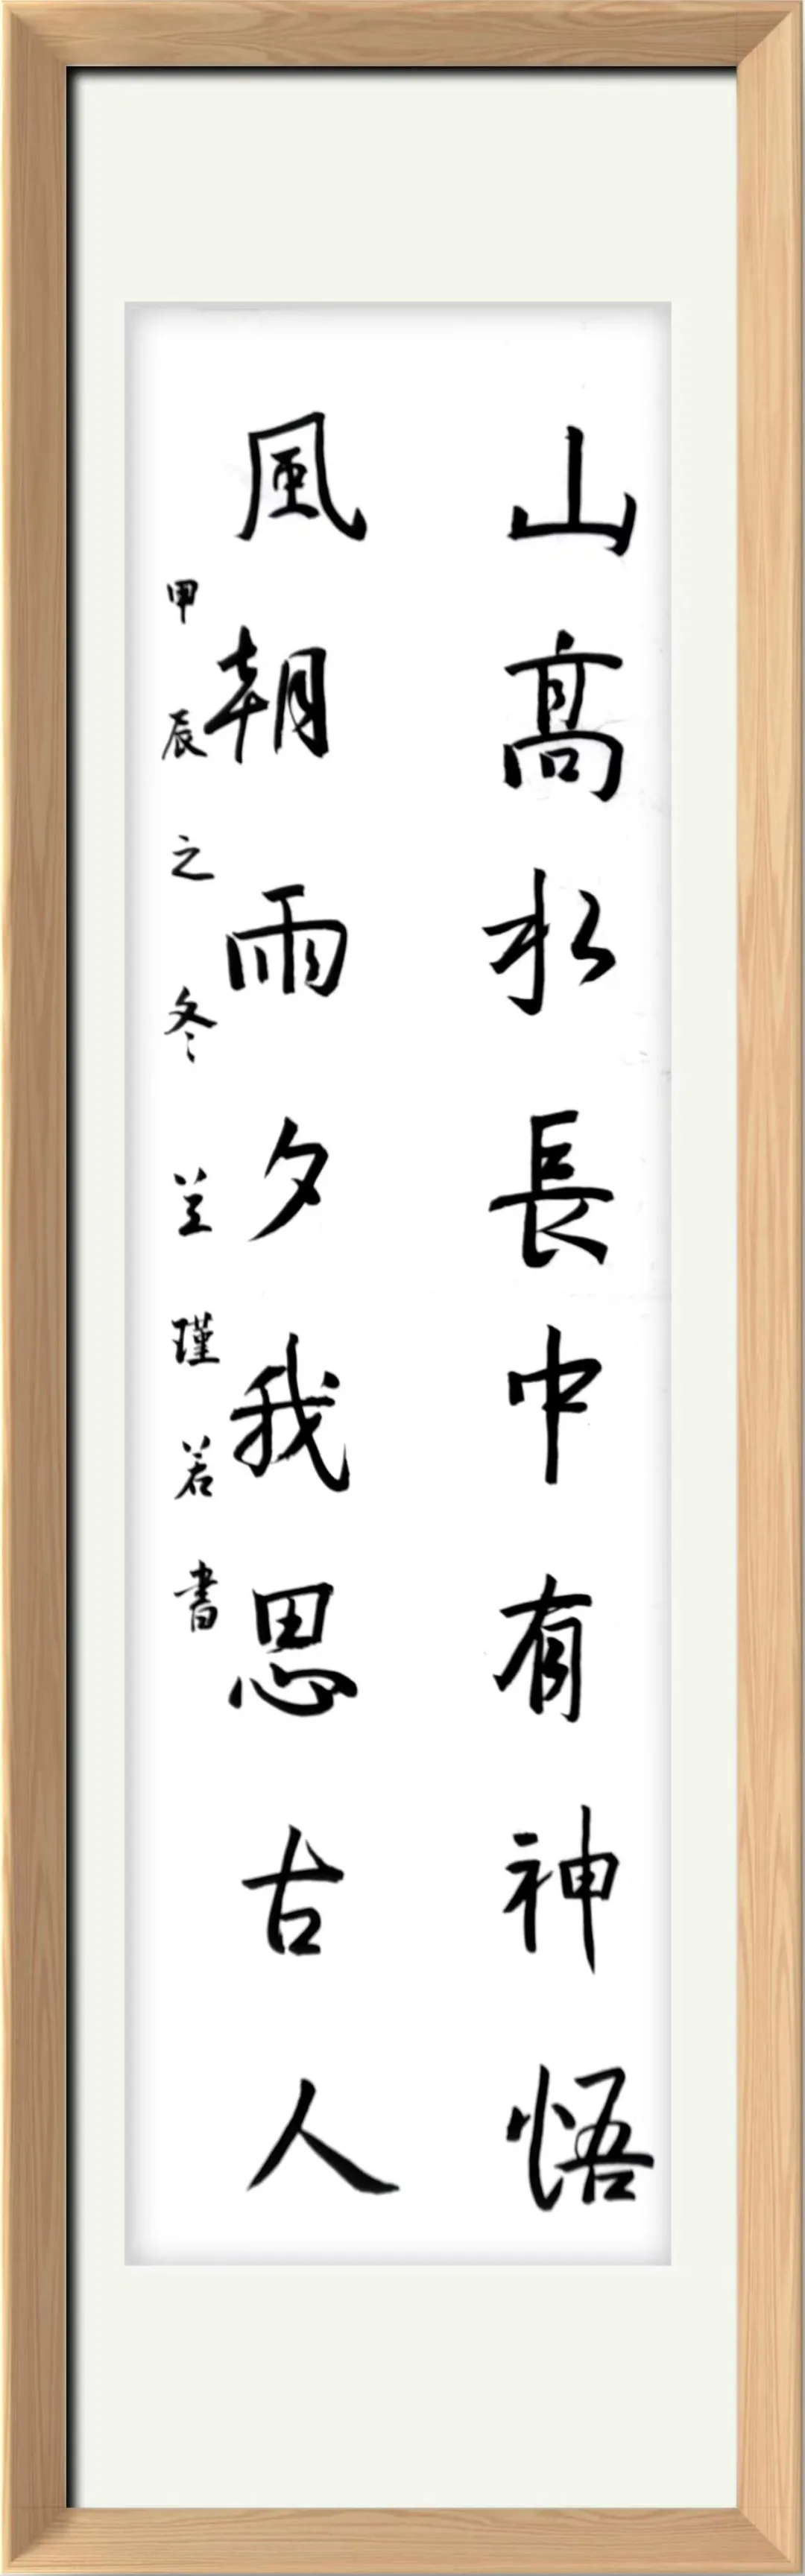 山高水長中有神悟
風朝雨夕我思古人
甲辰之冬兰瑾若書